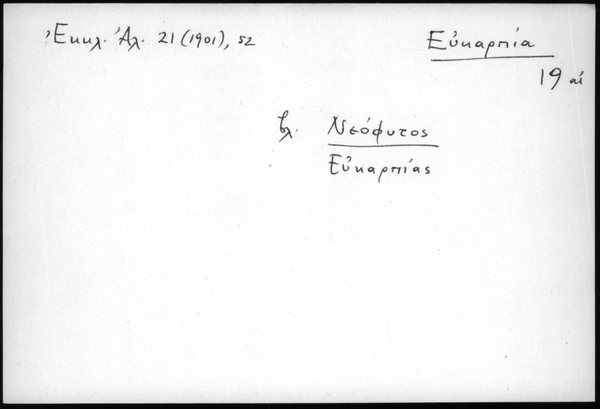 Ἐκκλ. Ἀλ. 21 (1901), 52
Εὐκαρπία
19 αἰ
βλ. Νεόφυτος
Εὐκαρπίας